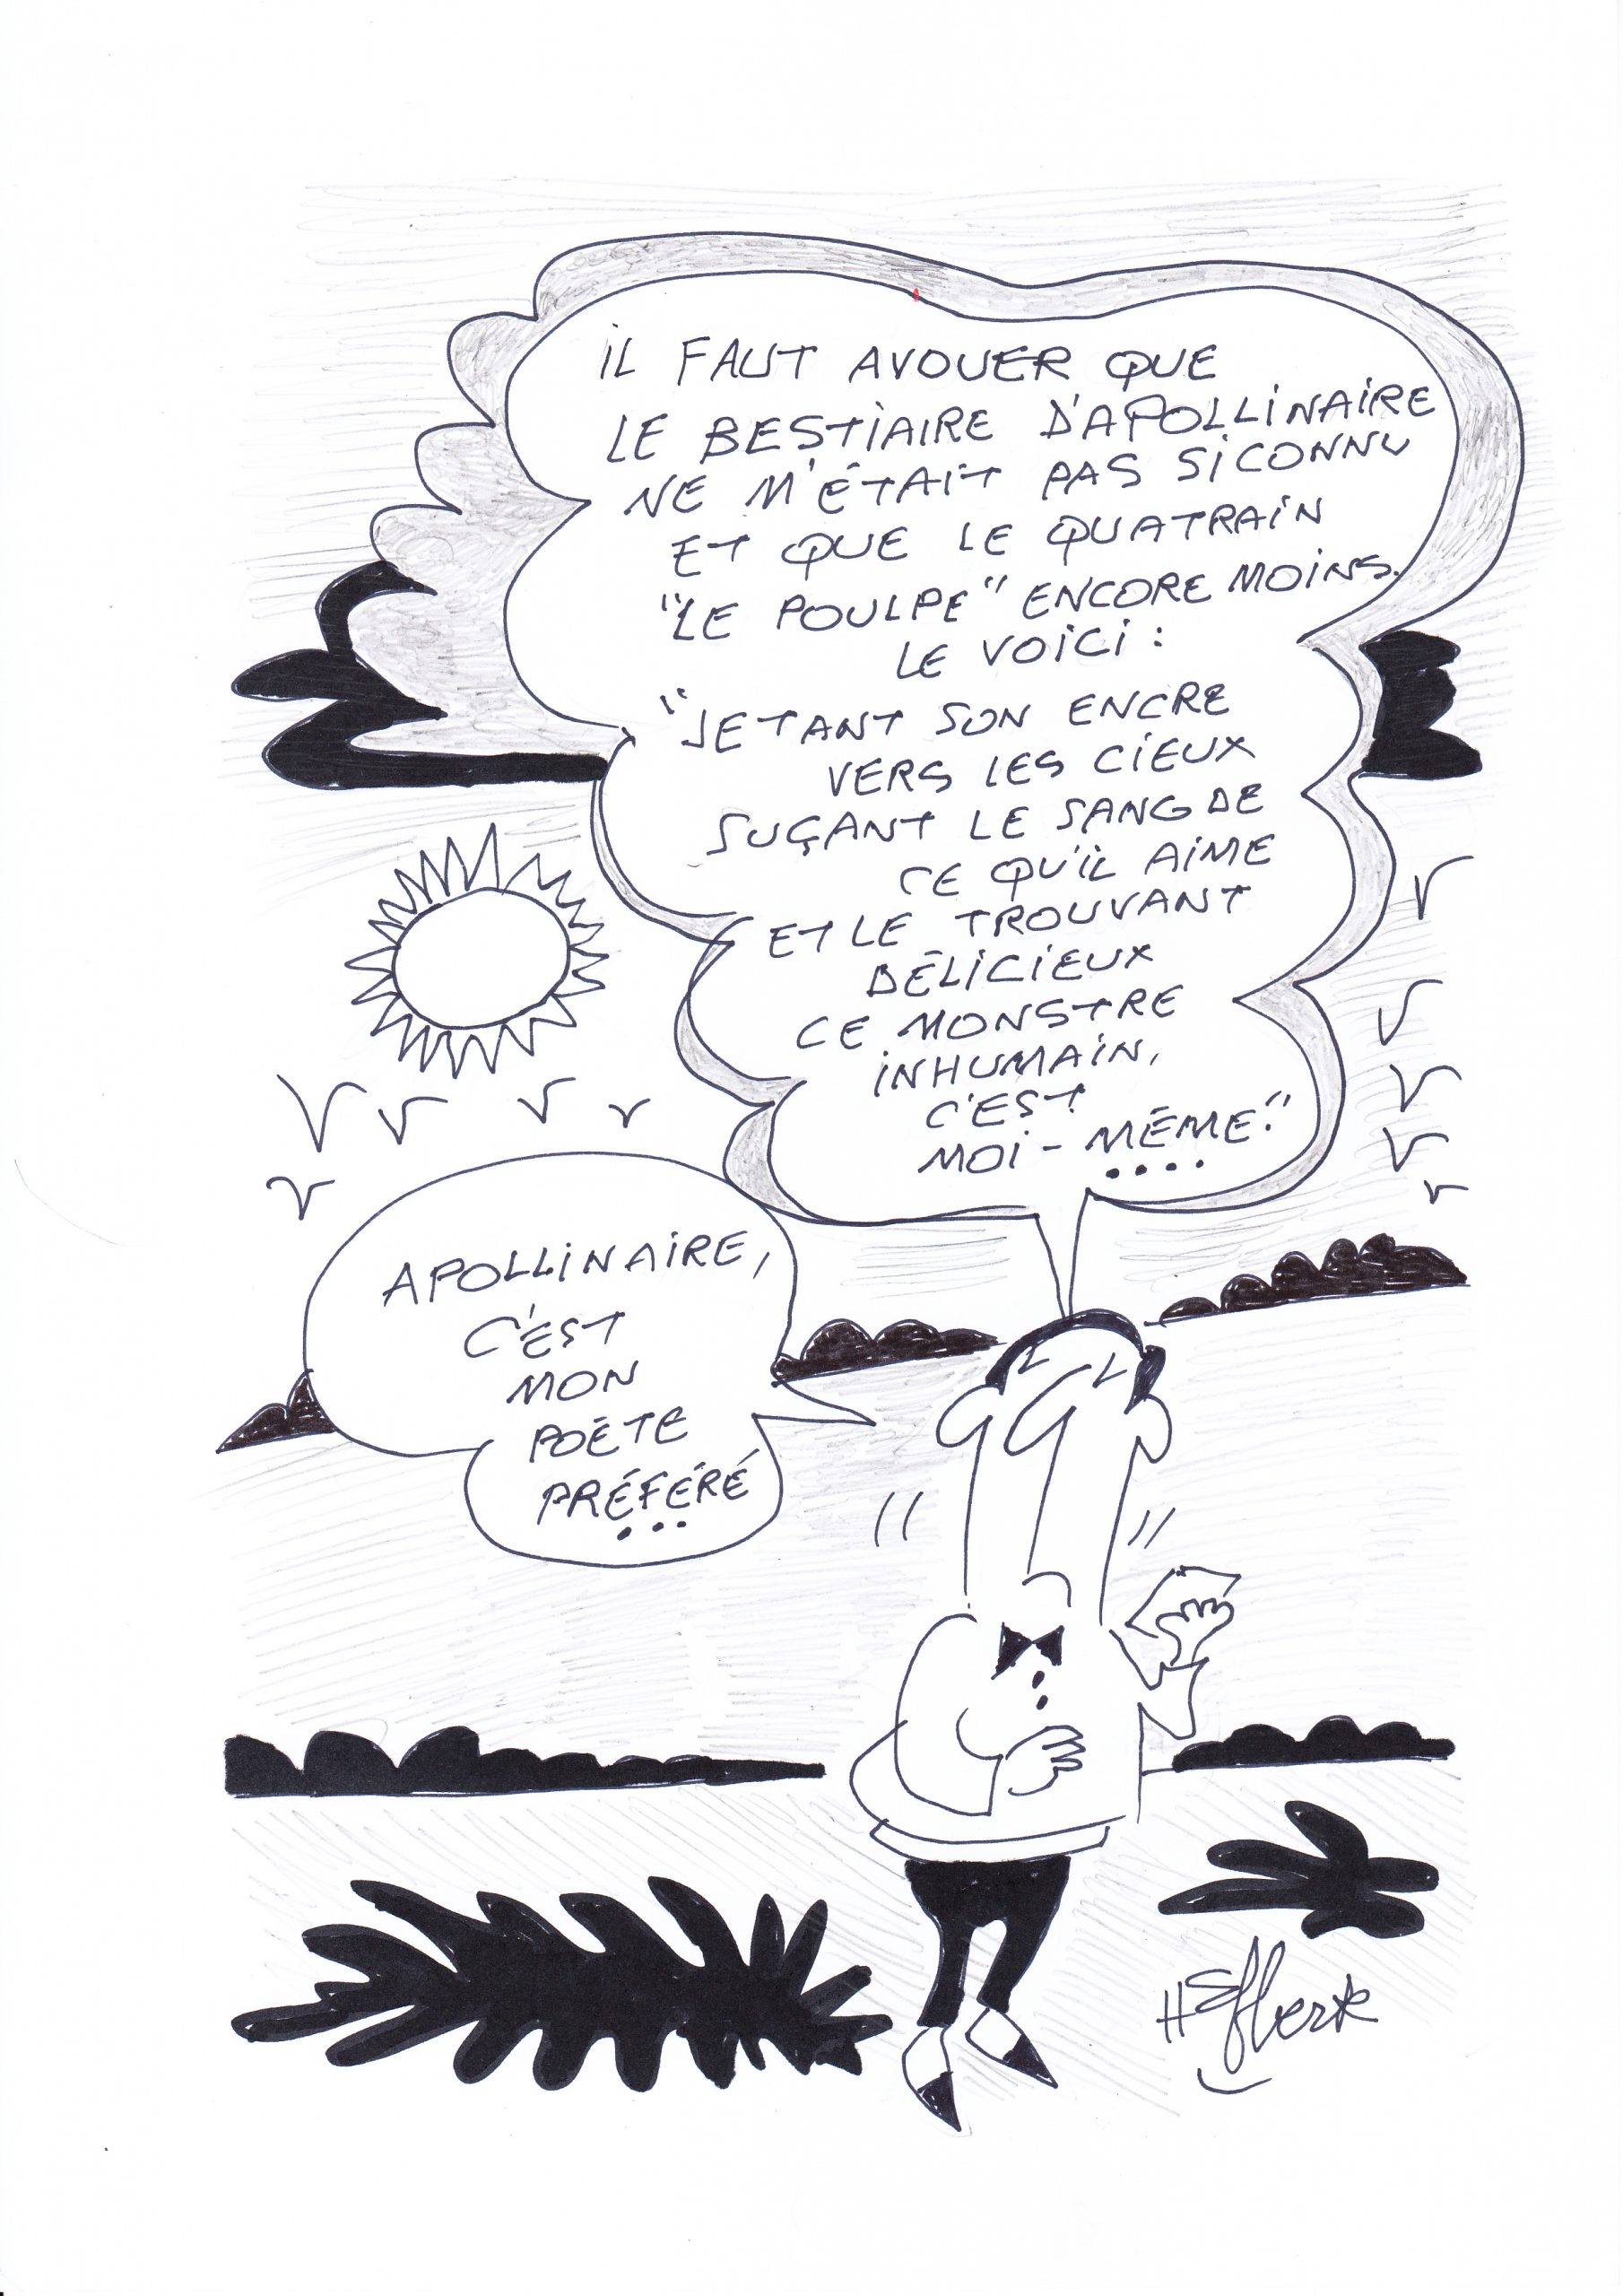 iL FAUT AVOUER QUE
LE BESTiAIRE D'APOLLiNAiRE
NE M'ÉTAIT PAS Si CONNU
ET QUE LE QUATRAiN
"LE POULPE" ENCORE MOiNS.
LE VOiCi :
"JETANT SON ENCRE
VERS LES CiEUX
SUÇANT LE SANG DE
CE QU'iL AiME
ET LE TROUVANT
DÉLiCiEUX
CE MONSTRE
iNHUMAiN,
C'EST
MOi - MÊME."
....
APOLLiNAIRE,
C'EST
MON
POÈTE
PRÉFÉRÉ
...